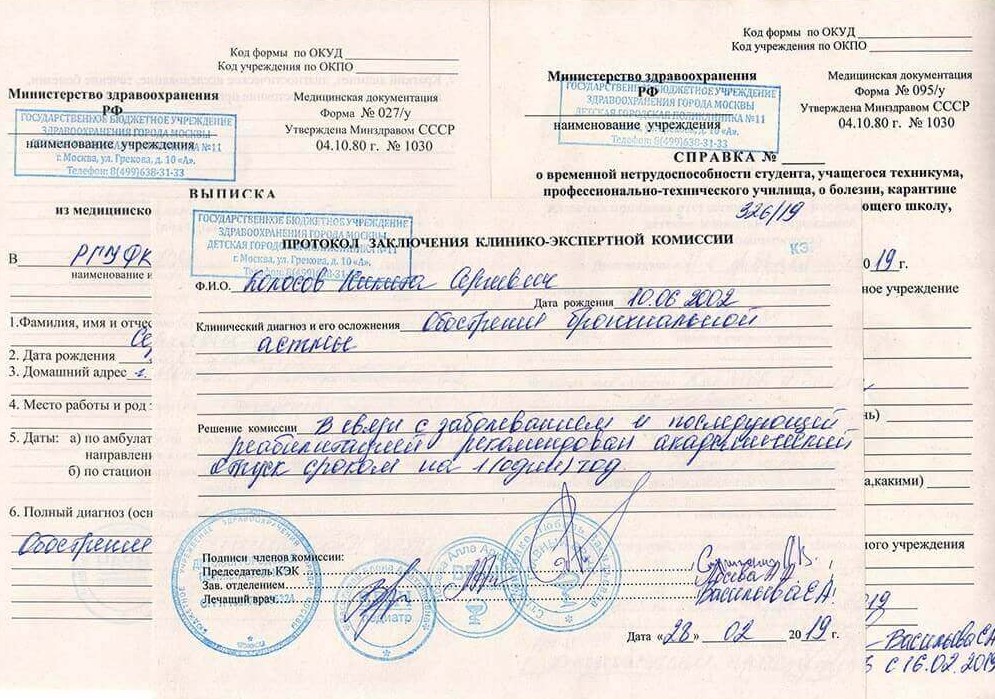 Код формы по ОКУД
Код учреждения по ОКПО
Министерство здравоохранения
РФ
ГОСУДАРСТВЕННОЕ БЮДЖЕТНОЕ УЧРЕЖДЕНИЕ
ЗДРАВООХРАНЕНИЯ ГОРОДА МОСКВЫ
№11
г. Москва, ул. Грекова, д. 10 «А».
Телефон: 8(499)638-31-33
наименование учреждения
Медицинская документация
Форма № 027/у
Утверждена Минздравом СССР
04.10.80 г. № 1030
ВЫПИСКА
из медицинско
В РГУФК
наименование
1.Фамилия, имя и отчес
Се
2. Дата рождения
3. Домашний адрес г.
4. Место работы и род
5. Даты: а) по амбулат
направлен
б) по стацион
6. Полный диагноз (осн
Обострение
Код формы по ОКУД
Код учреждения по ОКПО
Министерство здравоохранения
РФ
ГОСУДАРСТВЕННОЕ БЮДЖЕТНОЕ УЧРЕЖДЕНИЕ
ЗДРАВООХРАНЕНИЯ ГОРОДА МОСКВЫ
ДЕТСКОЙ ГОРОДСКОЙ ПОЛИКЛИНИКА №11
г. Москва, ул. Грекова, д. 10 «А».
Телефон: 8(499)638-31-33
наименование учреждения
Медицинская документация
Форма № 095/у
Утверждена Минздравом СССР
04.10.80 г. № 1030
СПРАВКА №
о временной нетрудоспособности студента, учащегося техникума,
профессионально-технического училища, о болезни, карантине
ющего школу,
0 19 г.
ное учреждение
нь)
а,какими)
ого учреждения
19
Васильева Е А
с 16.02.2019
326/19
ГОСУДАРСТВЕННОЕ БЮДЖЕТНОЕ УЧРЕЖДЕНИЕ
ЗДРАВООХРАНЕНИЯ ГОРОДА МОСКВЫ
ДЕТСКАЯ ГОРОДСКАЯ №11
г. Москва, ул. Грекова, д. 10 «А».
Телефон: 8(499)638-31-33
ПРОТОКОЛ ЗАКЛЮЧЕНИЯ КЛИНИКО-ЭКСПЕРТНОЙ КОМИССИИ
КЭ
Ф.И.О. Колосов Никита Сергеевич
Дата рождения 10.06 2002
Клинический диагноз и его осложнения Обострение бронхиальной
астмы
Решение комиссии В связи с заболеванием и последующей
реабилитацией рекомендован академический
отпуск сроком на 1(один) год
Подписи членов комиссии:
Председатель КЭК
Зав. отделением
Лечащий врач Васильева Е.А.
педиатр
Дата «28» 02 2019 г.